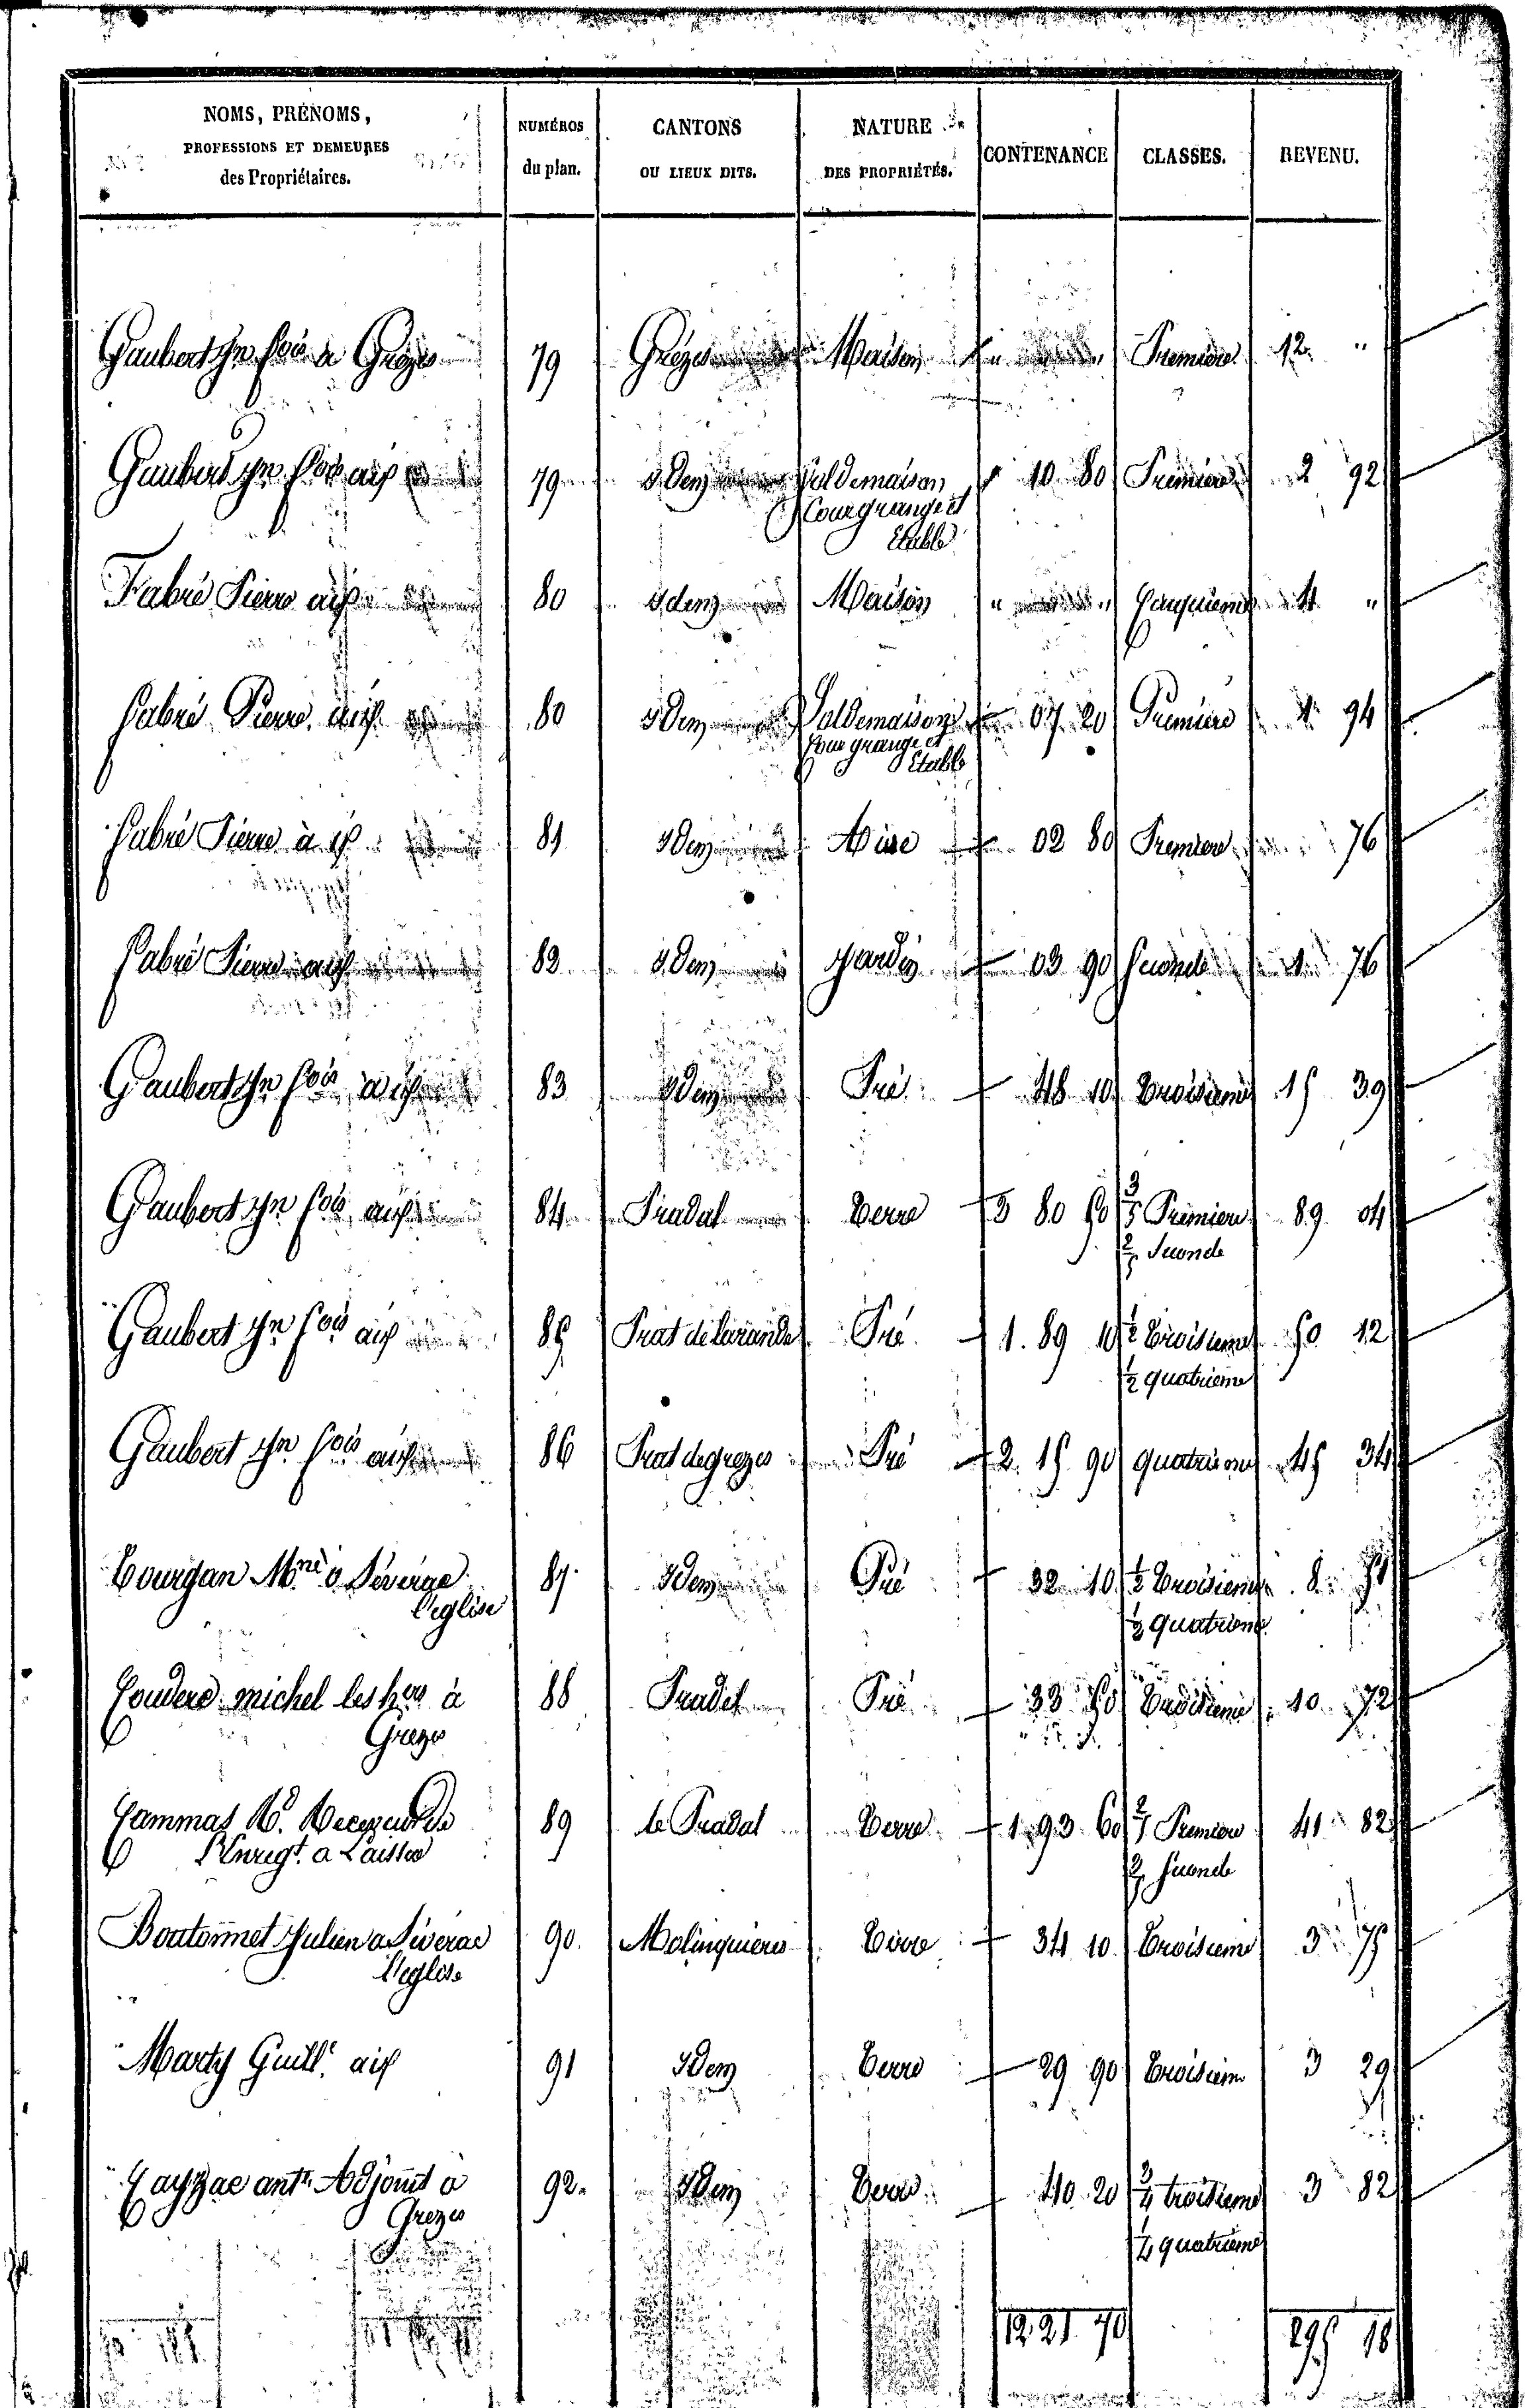 NOMS, PRÉNOMS, PROFESSIONS ET DEMEURES des Propriétaires. NUMÉROS du plan. CANTONS OU LIEUX DITS. NATURE DES PROPRIÉTÉS. CONTENANCE CLASSES. REVENU.
Gaubert Jn fois à Grèzes 79 Grèzes Maison " " Premiere 12 "
Gaubert Jn fois aif 79 Idem Sol de maison 10 80 Premiere 2 92
Cour grange et
Etable
Fabré Pierre aif 80 Idem Maison " " Cinquieme 4 "
Fabré Pierre aif 80 Idem Sol de maison 07 20 Premiere 1 94
Cour grange et
Etable
Fabré Pierre à if 81 Idem Aire 02 80 Premiere 76
Fabré Pierre aif 82 Idem Jardin 03 90 Seconde 1 76
Gaubert Jn fois à if 83 Idem Pré 48 10 Troisieme 15 39
Gaubert Jn fois aif 84 Pradal Terre 3 80 50 3/5 Premiere 89 04
2/5 Seconde
Gaubert Jn fois aif 85 Prat de laranda Pré 1. 89 10 1/2 Troisieme 50 12
1/2 quatrieme
Gaubert Jn fois aif 86 Prat de grezes Pré 2 15 90 quatrieme 45 34
Tourgan Mne à Séverac 87 Idem Pré 32 10 1/2 Troisieme 8 51
l'eglise 1/2 quatrieme
Couderc michel les hers à 88 Pradel Pré 33 50 Troisieme 10 72
Grezes
Cammas Rd. Receveur de 89 le Pradal Terre 1 93 60 Premiere 41 82
l'Enregt. a Laissac Seconde
Boutonnet Julien a Séverac 90 Molinquieres Terre 34 10 Troisieme 3 75
l'eglise
Marty Guille aif 91 Idem Terre 29 90 Troisieme 3 29
Cayzac ante. Adjoint à 92. Idem Terre 40 20 3/4 troisieme 3 82
Grezes 1/4 quatrieme
12 21 70 295 18